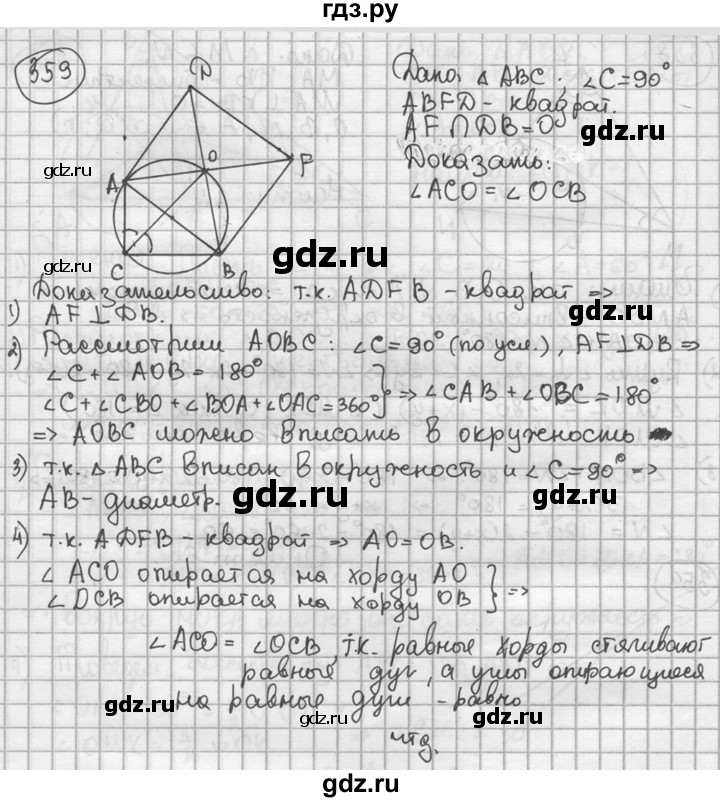 гдз.ру
359
Дано: △ ABC; ∠C=90°
ABFD - квадрат.
AF∩DB=O
Доказать:
∠ACO = ∠OCB
D
O
F
A
C
B
gdz.ru
gdz.ru
gdz.ru
Доказательство: т.к. ADFB - квадрат =>
1) AF⊥DB.
gdz.ru
2) Рассмотрим AOBC: ∠C=90° (по усл.), AF⊥DB =>
∠C+∠AOB = 180°
∠C+∠CBO+∠BOA+∠OAC=360° } => ∠CAB+∠OBC=180°
=> AOBC можно вписать в окружность
3) т.к. △ABC вписан в окружность и ∠C=90° =>
AB - диаметр.
gdz.ru
gdz.ru
4) т.к. ADFB - квадрат => AO=OB.
∠ACO опирается на хорду AO
∠OCB опирается на хорду OB } =>
gdz.ru
gdz.ru
∠ACO = ∠OCB, т.к. равные хорды стягивают
равные дуг, а углы опирающиеся
на равные дуги - равно
чтд.
gdz.ru
gdz.ru
gdz.ru
gdz.ru